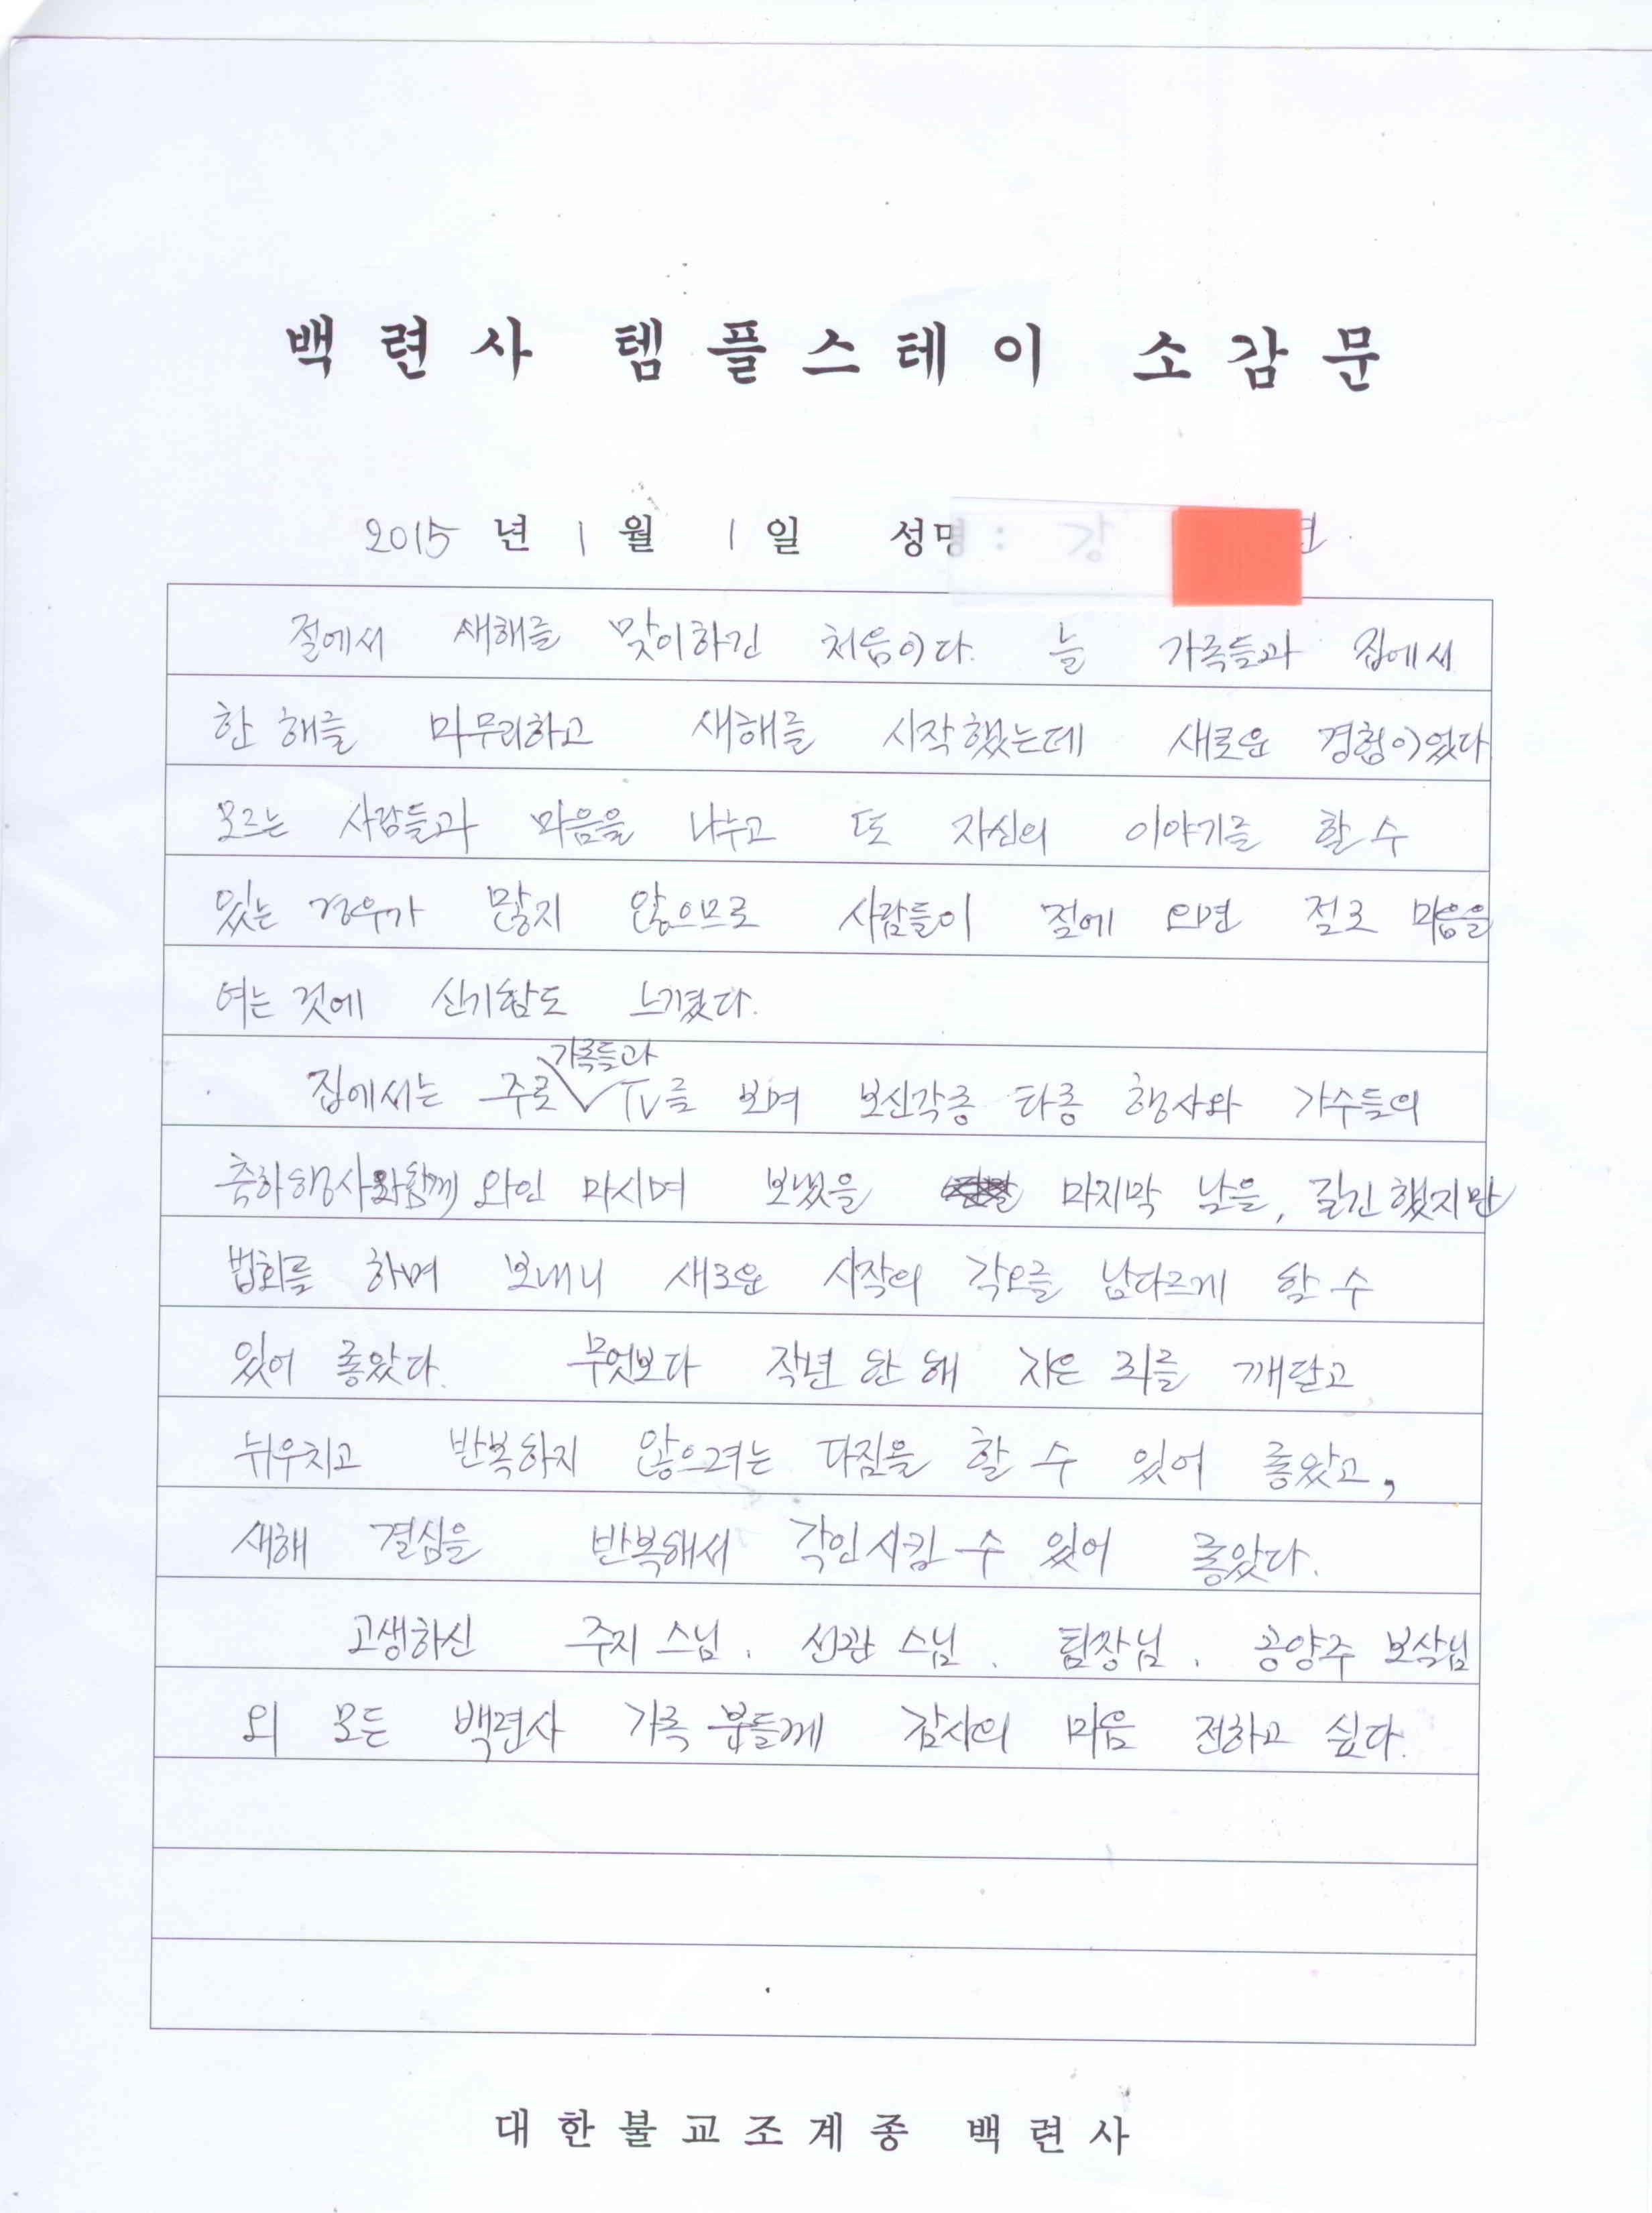 백련사 템플스테이 소감문
2015 년 1 월 1 일 성명 : 강
절에서 새해를 맞이하긴 처음이다. 늘 가족들과 집에서
한 해를 마무리하고 새해를 시작했는데 새로운 경험이었다
모르는 사람들과 마음을 나누고 또 자신의 이야기를 할 수
있는 경우가 많지 않으므로 사람들이 절에 오면 절로 마음을
여는 것에 신기함도 느꼈다.
집에서는 주로 가족들과 TV를 보며 보신각종 타종 행사와 가수들의
축하행사와 함께 와인 마시며 보냈을 마지막 날을, 길긴 했지만
법회를 하며 보내니 새로운 시작의 각오를 남다르게 할 수
있어 좋았다. 무엇보다 작년 한 해 지은 죄를 깨닫고
뉘우치고 반복하지 않으려는 다짐을 할 수 있어 좋았고,
새해 결심을 반복해서 각인시킬 수 있어 좋았다.
고생하신 주지 스님. 선관 스님. 팀장님. 공양주 보살님
외 모든 백련사 가족 분들께 감사의 마음 전하고 싶다.
대한불교조계종 백련사